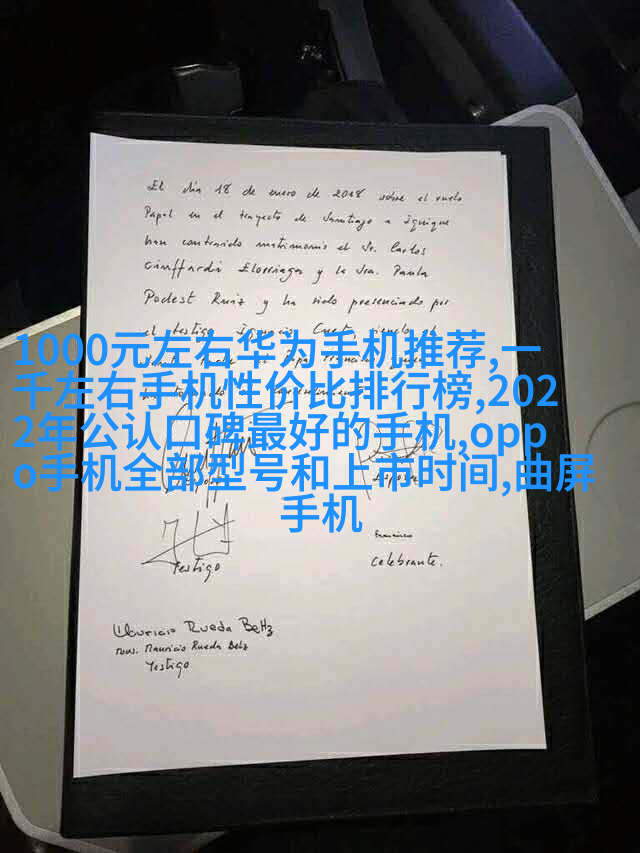 El día 18 de enero de 2018 sobre el vuelo
Papal en el trayecto de Santiago a Iquique
han contraido matrimonio el Sr. Carlos
Ciuffardi Elorriaga y la Sra. Paula
Podest Ruiz y ha sido presenciado por
el testigo Ignacio Cueto
1000元左右华为手机推荐,一
千左右手机性价比排行榜,202
2年公认口碑最好的手机,opp
o手机全部型号和上市时间,曲屏
手机
Testigo
Francisco
Celebrante.
Mauricio Rueda Beltz
Mons. Mauricio Rueda Beltz
Testigo